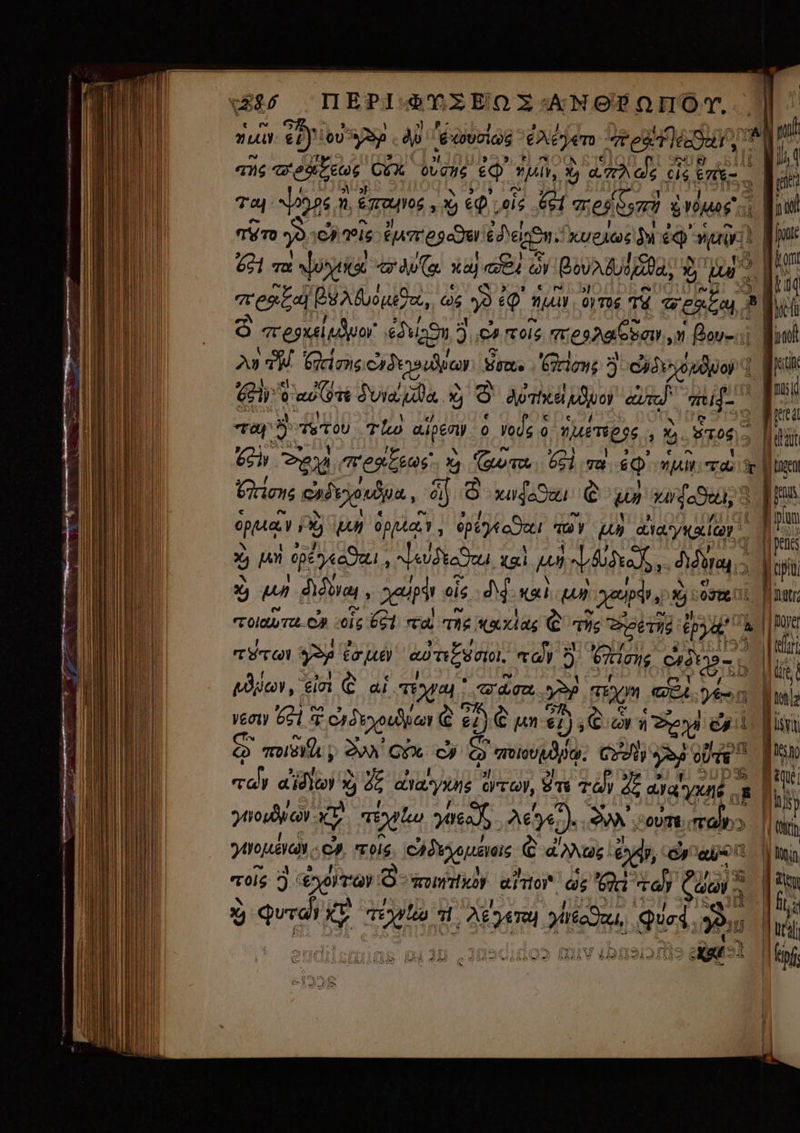 286 ΠΕΡΙ ΦΥΣΕΩΣ ΑΝΘΡΩΠΟΥ.
ἡμῖν εἶναι· οὐ γὰρ ἂν ἑκουσίως ἐλέγετο πράττεσθαι,
τῆς πράξεως οὐκ οὔσης ἐφ' ἡμῖν, καὶ ἁπλῶς οἷς ἕπε-
ται ψόγος ἢ ἔπαινος, καὶ ἐφ' οἷς ἐστὶ προτροπὴ καὶ νόμος·
τοῦτο γὰρ ἐν τοῖς ἔμπροσθεν ἐδείχθη. κυρίως δὲ ἐφ' ἡμῖν
ἐστὶ τὰ ψυχικὰ πάντα καὶ περὶ ὧν βουλευόμεθα, καὶ μὴ
πρᾶξαι βουλευόμεθα, ὡς γὰρ ἐφ' ἡμῖν ὄντος τοῦ πρᾶξαι
τὸ προκείμενον· ἐδείχθη δὲ ἐν τοῖς προλαβοῦσιν, ἡ βου-
λὴ τῶν ἐπίσης ἐνδεχομένων οὖσα. ἐπίσης δὲ ἐνδεχόμενον
ἐστὶν ὃ αὐτό τε δυνάμεθα καὶ τὸ ἀντικείμενον αὐτῷ· ποιεῖ-
ται δὲ τούτου τὴν αἵρεσιν ὁ νοῦς ὁ ἡμέτερος, καὶ οὗτος
ἐστὶν ἀρχὴ πράξεως· καὶ ταῦτα ἐστὶ τὰ ἐφ' ἡμῖν τὰ
ἐπίσης ἐνδεχόμενα, οἷον τὸ κινεῖσθαι καὶ μὴ κινεῖσθαι,
ὁρμᾶν καὶ μὴ ὁρμᾶν, ὀρέγεσθαι τῶν μὴ ἀναγκαίων
καὶ μὴ ὀρέγεσθαι, ψεύδεσθαι καὶ μὴ ψεύδεσθαι, διδόναι
καὶ μὴ διδόναι, χαίρειν οἷς δεῖ καὶ μὴ χαίρειν, καὶ ὅσα
τοιαῦτα ἐν οἷς ἐστὶ τὰ τῆς κακίας καὶ τῆς ἀρετῆς ἔργα·
τούτων γὰρ ἐσμὲν αὐτεξούσιοι. τῶν δὲ ἐπίσης ἐνδεχο-
μένων, εἰσὶ καὶ αἱ τέχναι· πᾶσα γὰρ τέχνη περὶ γέ-
νεσιν ἐστὶ τῶν ἐνδεχομένων καὶ εἶναι καὶ μὴ εἶναι, καὶ ὧν ἡ ἀρχὴ ἐν
τῷ ποιοῦντι, ἀλλ' οὐκ ἐν τῷ ποιουμένῳ. οὐδὲν γὰρ οὔτε
τῶν ἀϊδίων καὶ ἐξ ἀνάγκης ὄντων, οὔτε τῶν ἐξ ἀνάγκης
γινομένων κατὰ τέχνην γίνεσθαι λέγεται. ἀλλ' οὔτε τῶν
γινομένων ἐν τοῖς ἐνδεχομένοις καὶ ἄλλως ἔχειν, ἐν αὐ-
τοῖς δὲ ἐχόντων τὸ ποιητικὸν αἴτιον· ὡς ἐπὶ τῶν ζώων
καὶ φυτῶν κατὰ τέχνην τι λέγεται γίνεσθαι, φύσει γὰρ